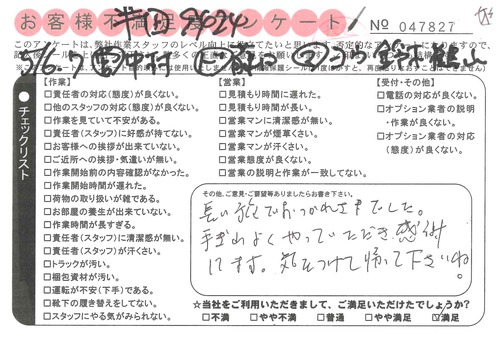 お客様不満足アンケート
No 047827
このアンケートは、弊社作業スタッフのレベル向上に
【作業】
□責任者の対応(態度)が良くない。
□他のスタッフの対応(態度)が良くない。
□作業を見ていて不安がある。
□責任者(スタッフ)に好感が持てない。
□お客様への挨拶が出来ていない。
□ご近所への挨拶・気遣いが無い。
□作業開始前の内容確認がなかった。
□作業開始時間が遅れた。
□荷物の取り扱いが雑である。
□お部屋の養生が出来ていない。
□作業時間が長すぎる。
□責任者(スタッフ)に清潔感が無い。
□責任者(スタッフ)が汗くさい。
□トラックが汚い。
□梱包資材が汚い。
□運転が不安(下手)である。
□靴下の履き替えをしてない。
□スタッフにやる気がみられない。
【営業】
□見積もり時間に遅れた。
□見積もり時間が長い。
□営業マンに清潔感が無い。
□営業マンが煙草くさい。
□営業マンが汗くさい。
□営業態度が良くない。
□営業の説明と作業が一致してない。
【受付・その他】
□電話の対応が良くない。
□オプション業者の説明
・作業が良くない。
□オプション業者の対応
(態度)が良くない。
チェックリスト
その他、ご意見・ご要望等ありましたらお書き下さい。
長い旅でおつかれさまでした。
手ぎわよくやっていただき感謝
します。気をつけて帰って下さいね。
☆当社をご利用いただきまして、ご満足いただけたでしょうか?
□不満 □やや不満 □普通 □やや満足 ☑満足